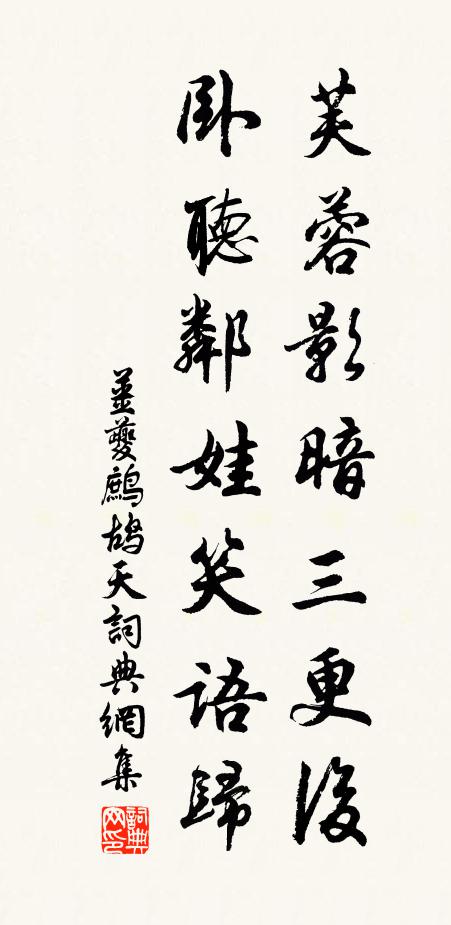 芙蓉影暗三更後
臥聽鄰娃笑語歸
姜夔鷓鴣天詞典網集
詞典网印